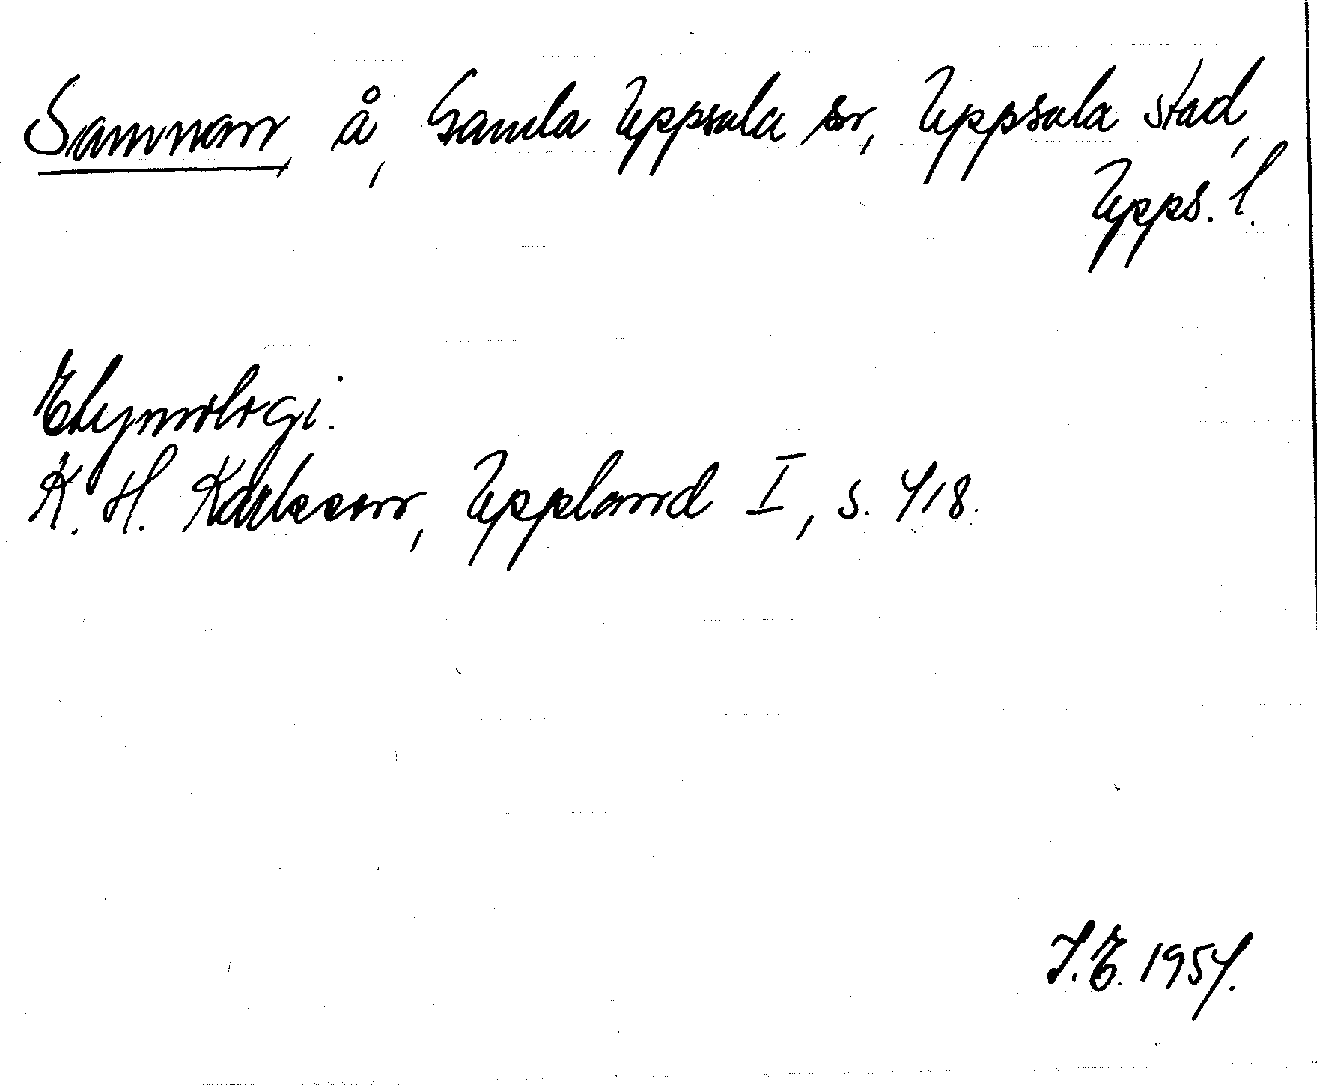 Samnan, å, Gamla Uppsala sn, Uppsala stad,
Upps. l.
Etymologi.
K. H. Karlsson, Uppland I, s. 418.
J.E. 1954.